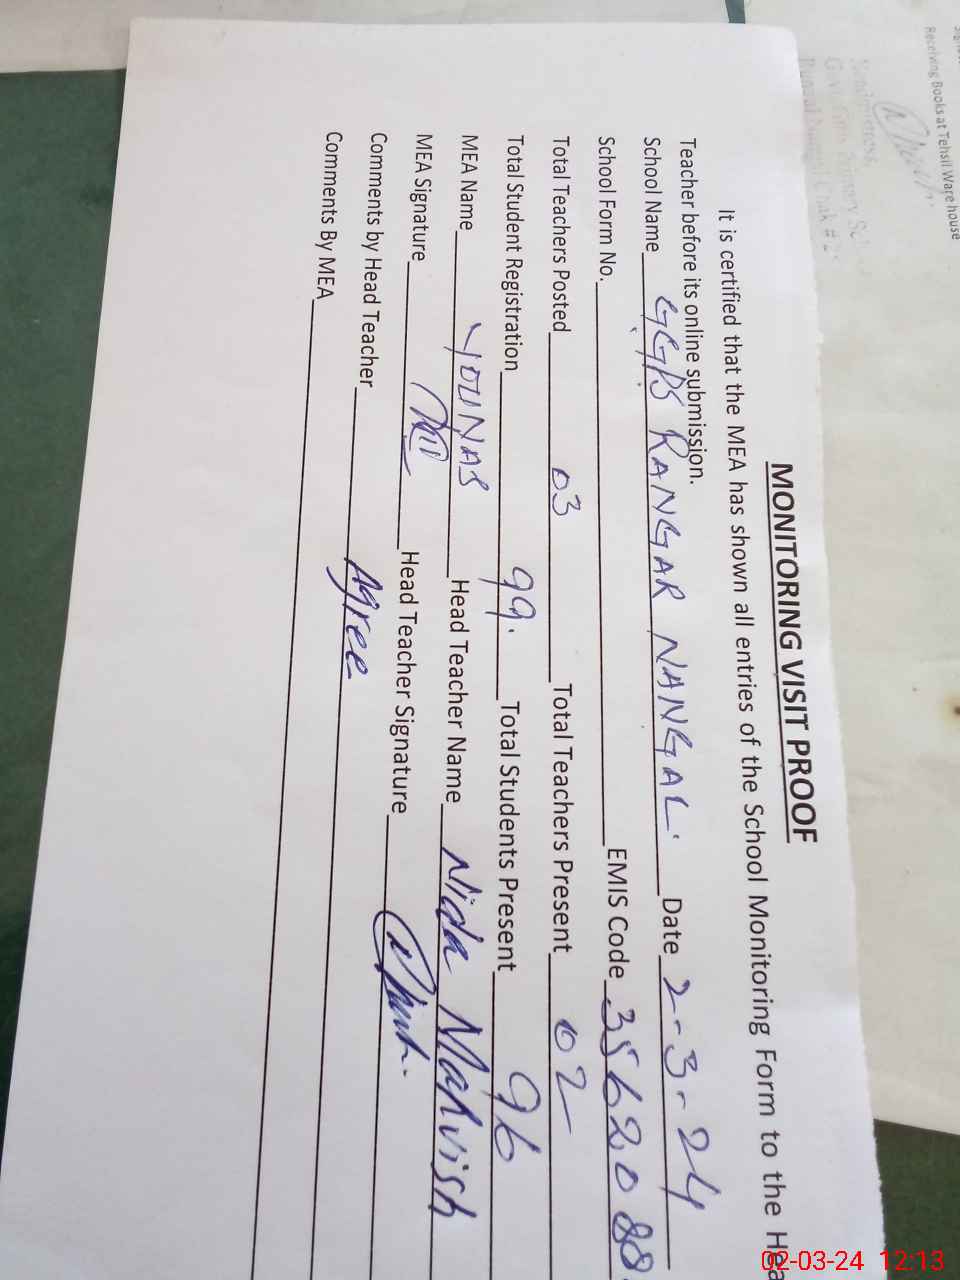 Receiving Books at Tehsil Ware house
MONITORING VISIT PROOF
It is certified that the MEA has shown all entries of the School Monitoring Form to the Hea
Teacher before its online submission.
School Name GGPS RANGAR NANGAL Date 2-3-24
School Form No. EMIS Code 35620088
Total Teachers Posted 03 Total Teachers Present 02
Total Student Registration 99. Total Students Present 96
MEA Name YOUNAS Head Teacher Name Nida Mahvish
MEA Signature Head Teacher Signature
Comments by Head Teacher Agree
Comments By MEA
02-03-24 12:13